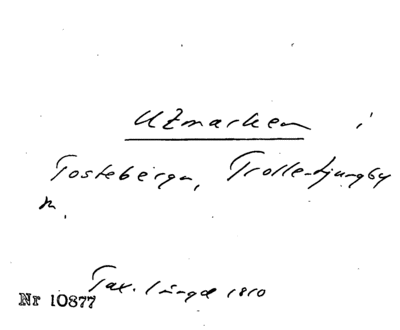 Utmarken i
Tosteberga, Trolle-Ljungby
sn.
Tax. längd 1810
Nr 10877